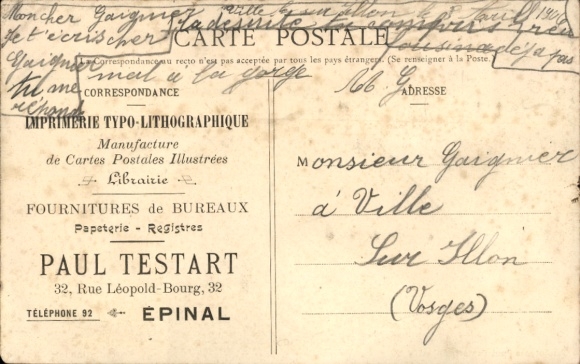 Mon cher Gaignier Ville sur illon le 3 Avril 190
Je t'écris cher
CARTE POSTALE
La Correspondance au recto n'est pas acceptée par tous les pays étrangers. (Se renseigner à la Poste.)
Gaignier mal à la gorge
déjà pas
tu me
réponds
CORRESPONDANCE
M. G
ADRESSE
IMPRIMERIE TYPO-LITHOGRAPHIQUE
Manufacture
de Cartes Postales Illustrées
Librairie
FOURNITURES de BUREAUX
Papeterie - Registres
PAUL TESTART
32, Rue Léopold-Bourg, 32
TÉLÉPHONE 92 ÉPINAL
Monsieur Gaignier
à Ville
Sur Illon
(Vosges)